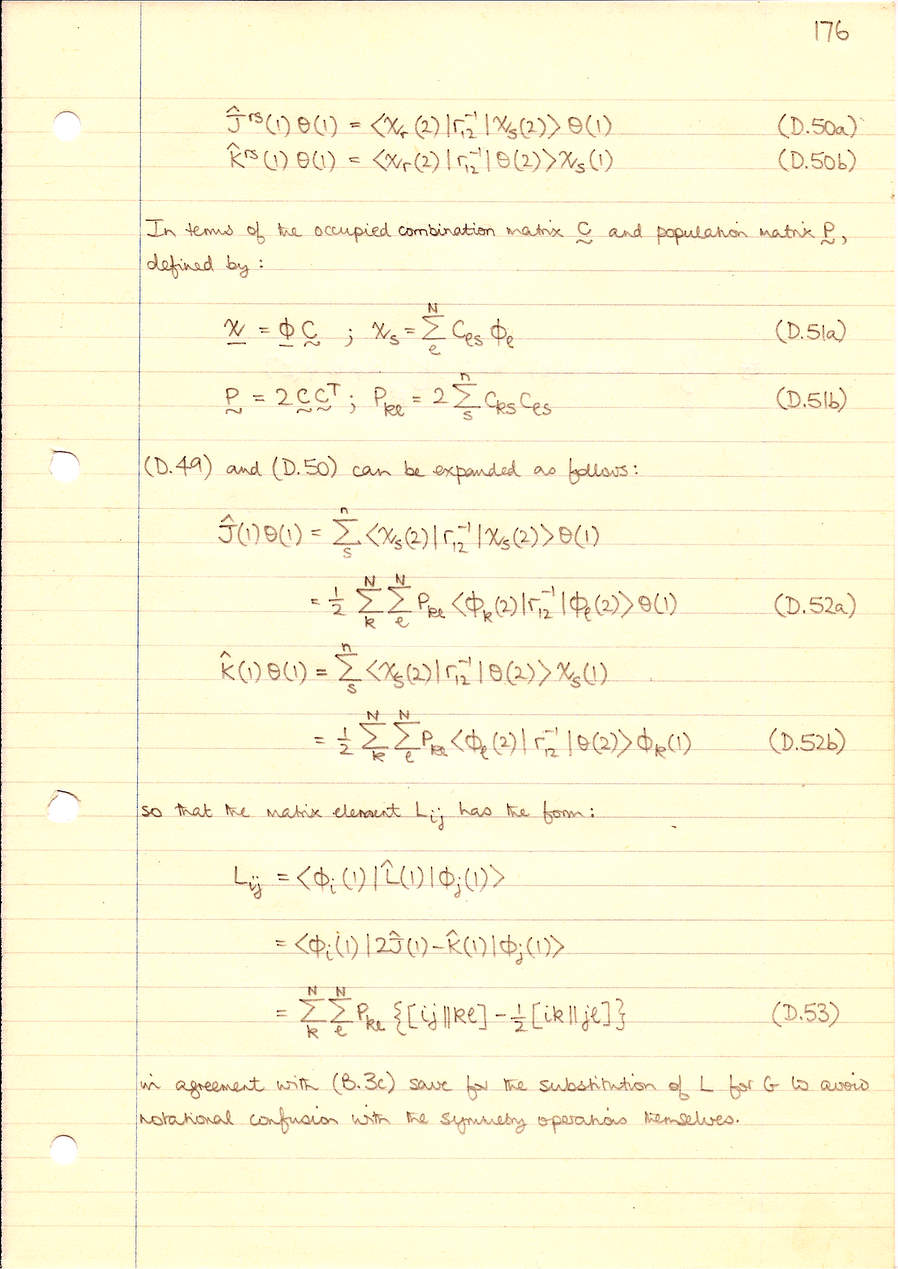 176
Ĵʳˢ(1) θ(1) = <χᵣ(2)|r₁₂⁻¹|χₛ(2)> θ(1) (D.50a)
K̂ʳˢ(1) θ(1) = <χᵣ(2)|r₁₂⁻¹|θ(2)> χₛ(1) (D.50b)
In terms of the occupied combination matrix C̰ and population matrix P̰,
defined by:
χ̲ = ϕ̲ C̰ ; χₛ = Σ_ℓ^N C_ℓs ϕ_ℓ (D.51a)
P̰ = 2 C̰ C̰ᵀ ; P_kℓ = 2 Σ_s^n C_ks C_ℓs (D.51b)
(D.49) and (D.50) can be expanded as follows:
Ĵ(1) θ(1) = Σ_s^n <χₛ(2)|r₁₂⁻¹|χₛ(2)> θ(1)
= ½ Σ_k^N Σ_ℓ^N P_kℓ <ϕ_k(2)|r₁₂⁻¹|ϕ_ℓ(2)> θ(1) (D.52a)
K̂(1) θ(1) = Σ_s^n <χₛ(2)|r₁₂⁻¹|θ(2)> χₛ(1)
= ½ Σ_k^N Σ_ℓ^N P_kℓ <ϕ_ℓ(2)|r₁₂⁻¹|θ(2)> ϕ_k(1) (D.52b)
so that the matrix element L_ij has the form:
L_ij = <ϕ_i(1)|L̂(1)|ϕ_j(1)>
= <ϕ_i(1)|2Ĵ(1) − K̂(1)|ϕ_j(1)>
= Σ_k^N Σ_ℓ^N P_kℓ {[ij‖kℓ] − ½[ik‖jℓ]} (D.53)
in agreement with (B.3c) save for the substitution of L for G to avoid
notational confusion with the symmetry operations themselves.